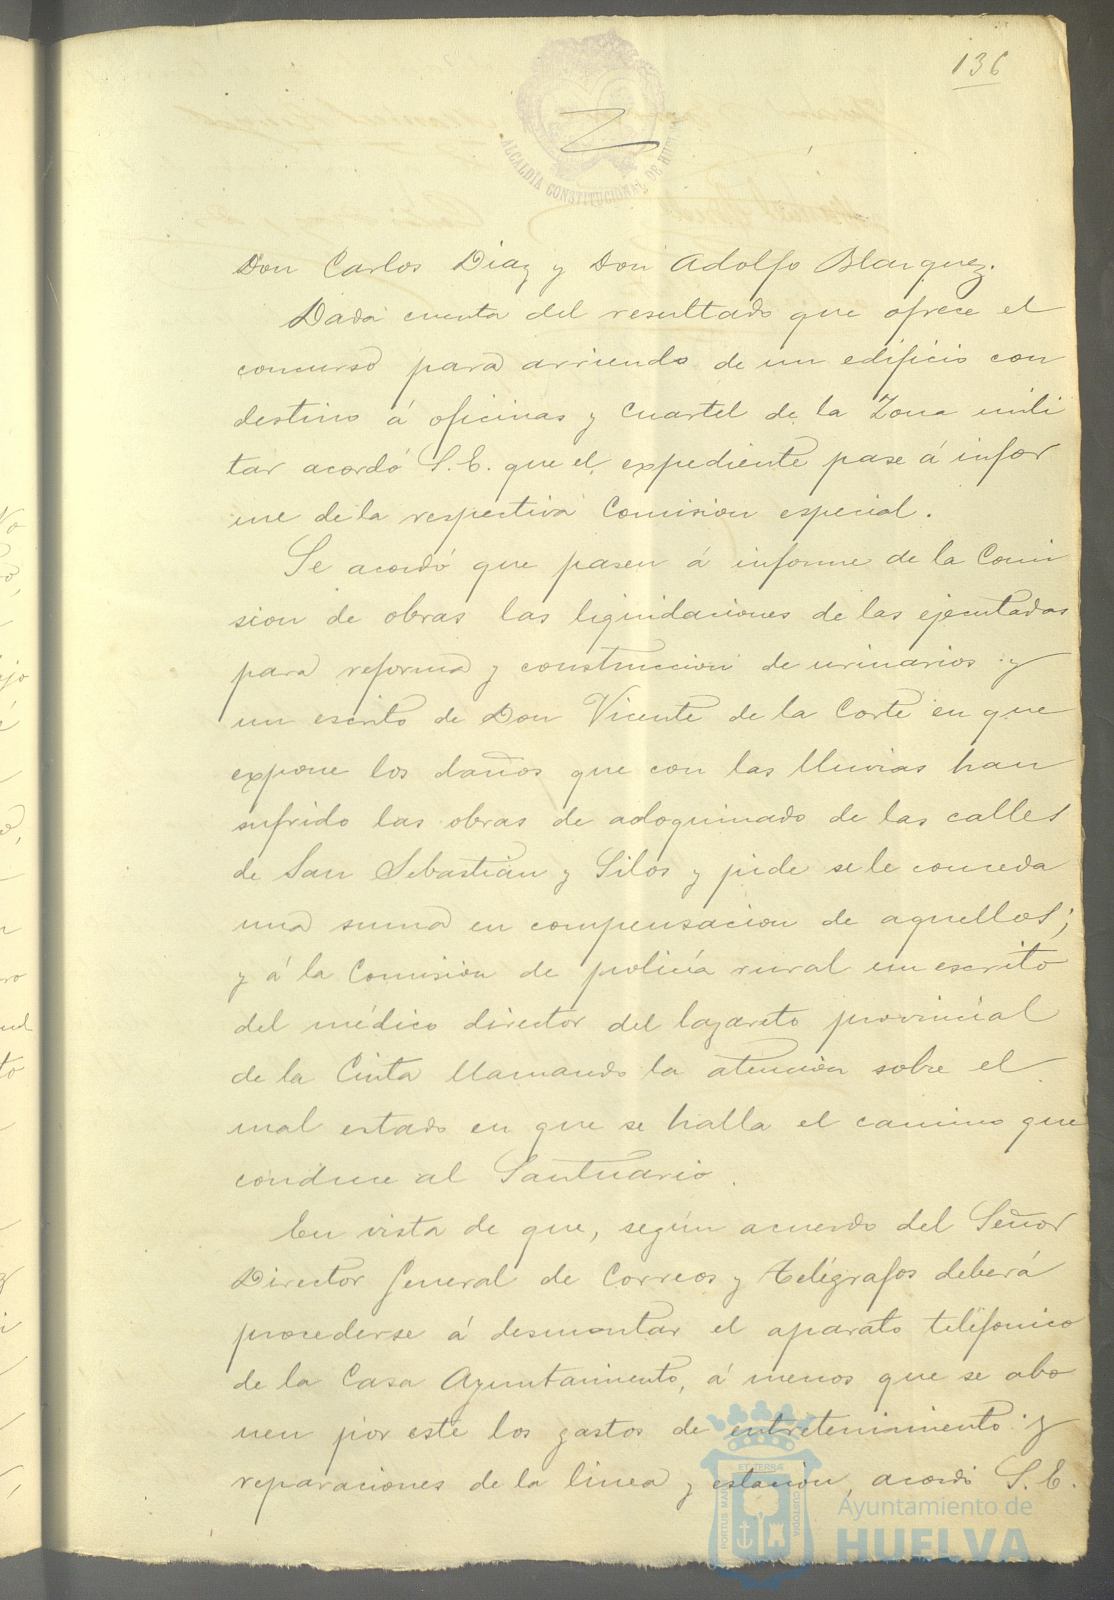 136
ALCALDÍA CONSTITUCIONAL DE HUELVA
Don Carlos Diaz y Don Adolfo Blazquez.
Dada cuenta del resultado que ofrece el
concurso para arriendo de un edificio con
destino á oficinas y cuartel de la Zona mili
tar acordó S. E. que el expediente pase á infor
me de la respectiva Comision especial.
Se acordó que pasen á informe de la Comi
sion de obras las liquidaciones de las ejecutadas
para reforma y construccion de urinarios y
un escrito de Don Vicente de la Corte en que
expone los daños que con las lluvias han
sufrido las obras de adoquinado de las calles
de San Sebastián y Silos y pide se le conceda
una suma en compensacion de aquellos;
y á la Comision de policía rural un escrito
del médico director del lazareto provincial
de la Cinta llamando la atencion sobre el
mal estado en que se halla el camino que
conduce al Santuario.
En vista de que, según acuerdo del Señor
Director General de Correos y Telégrafos deberá
procederse á desmontar el aparato teléfonico
de la Casa Ayuntamiento, á menos que se abo
nen por este los gastos de entretenimiento y
reparaciones de la linea y estacion, acordó S. E.
PORTUS MARIS ET TERRÆ CUSTODIA
Ayuntamiento de
HUELVA